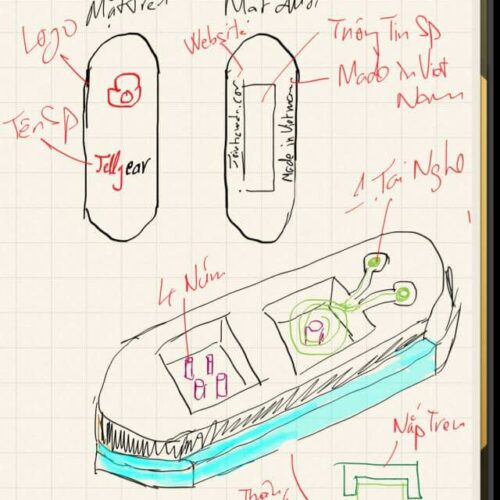 Mặt Trên
Mặt dưới
Logo
Website
Thông Tin SP
Made in Viet
Nam
Tên SP
Jellyear
Made in Vietnam
1 Tai Nghe
4 Núm
Nắp Trên